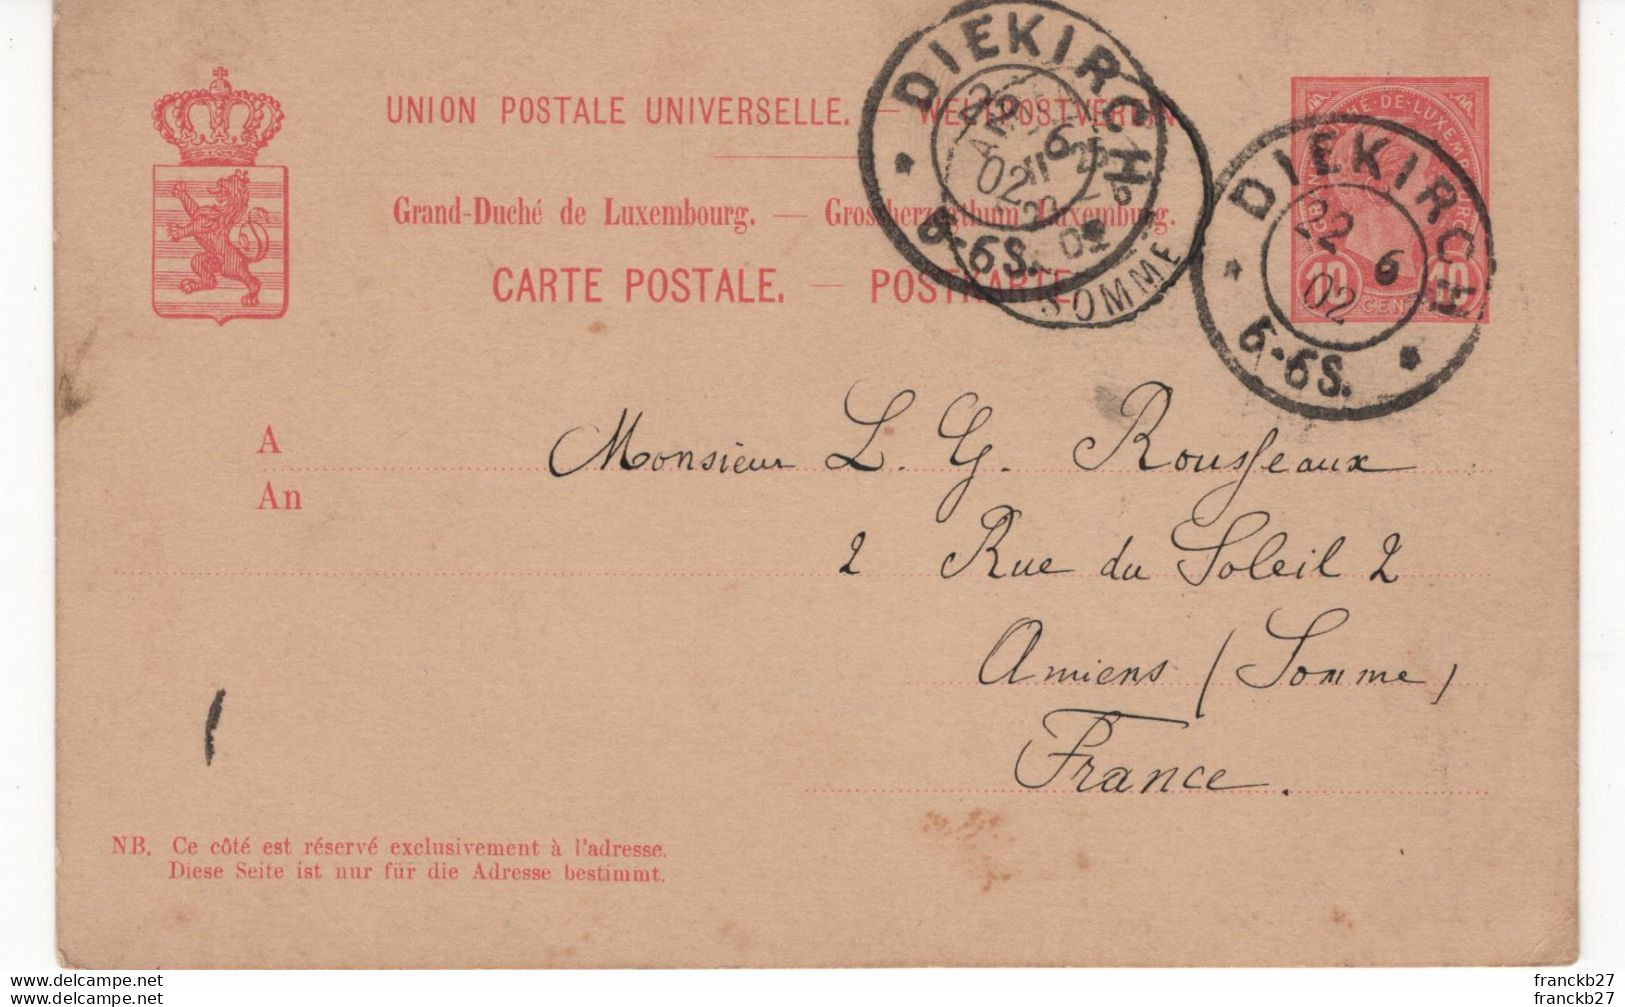 UNION POSTALE UNIVERSELLE. — WELTPOSTVEREIN
Grand-Duché de Luxembourg. — Grossherzogthum Luxemburg.
CARTE POSTALE. — POSTKARTE
DIEKIRCH
22 6
02
5-6S.
SOMME
DIEKIRCH
22 6
02
5-6S.
10 10
A Monsieur L. G. Rousseaux
An
2 Rue du Soleil 2
Amiens (Somme)
France.
NB. Ce côté est réservé exclusivement à l'adresse.
Diese Seite ist nur für die Adresse bestimmt.
www.delcampe.net franckb27
www.delcampe.net franckb27